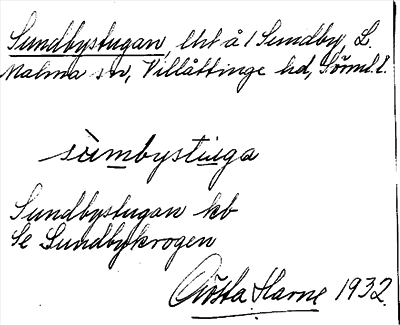 Sundbystugan, lht å 1 Sundby, L.
Malma sn, Villåttinge hd, Söml. l.
sùmbystuga
Sundbystugan kb
Se Sundbykrogen
Gösta Harne 1932.